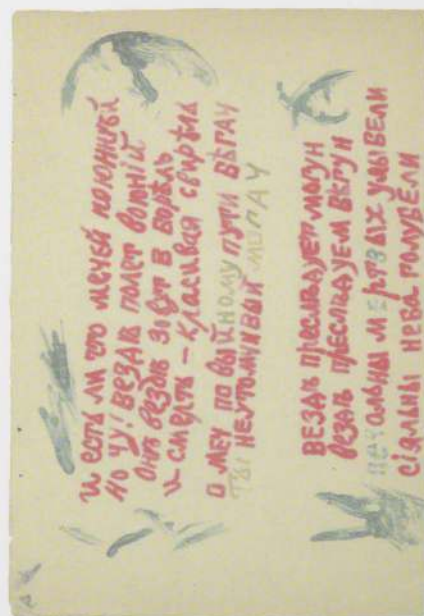 и есть ли что мечей поюннѣй
но чу! вездѣ полет воюнiй
онѣ вездѣ зовут в борѣль
и смерть – красивая свирѣль
о меч по выйному пути бѣгач
ты неутомчивый могач
вездѣ преслѣдует могун
вездѣ преслѣдуем бѣгун
печальны мертвых улыбели
сiяльны неба голубели